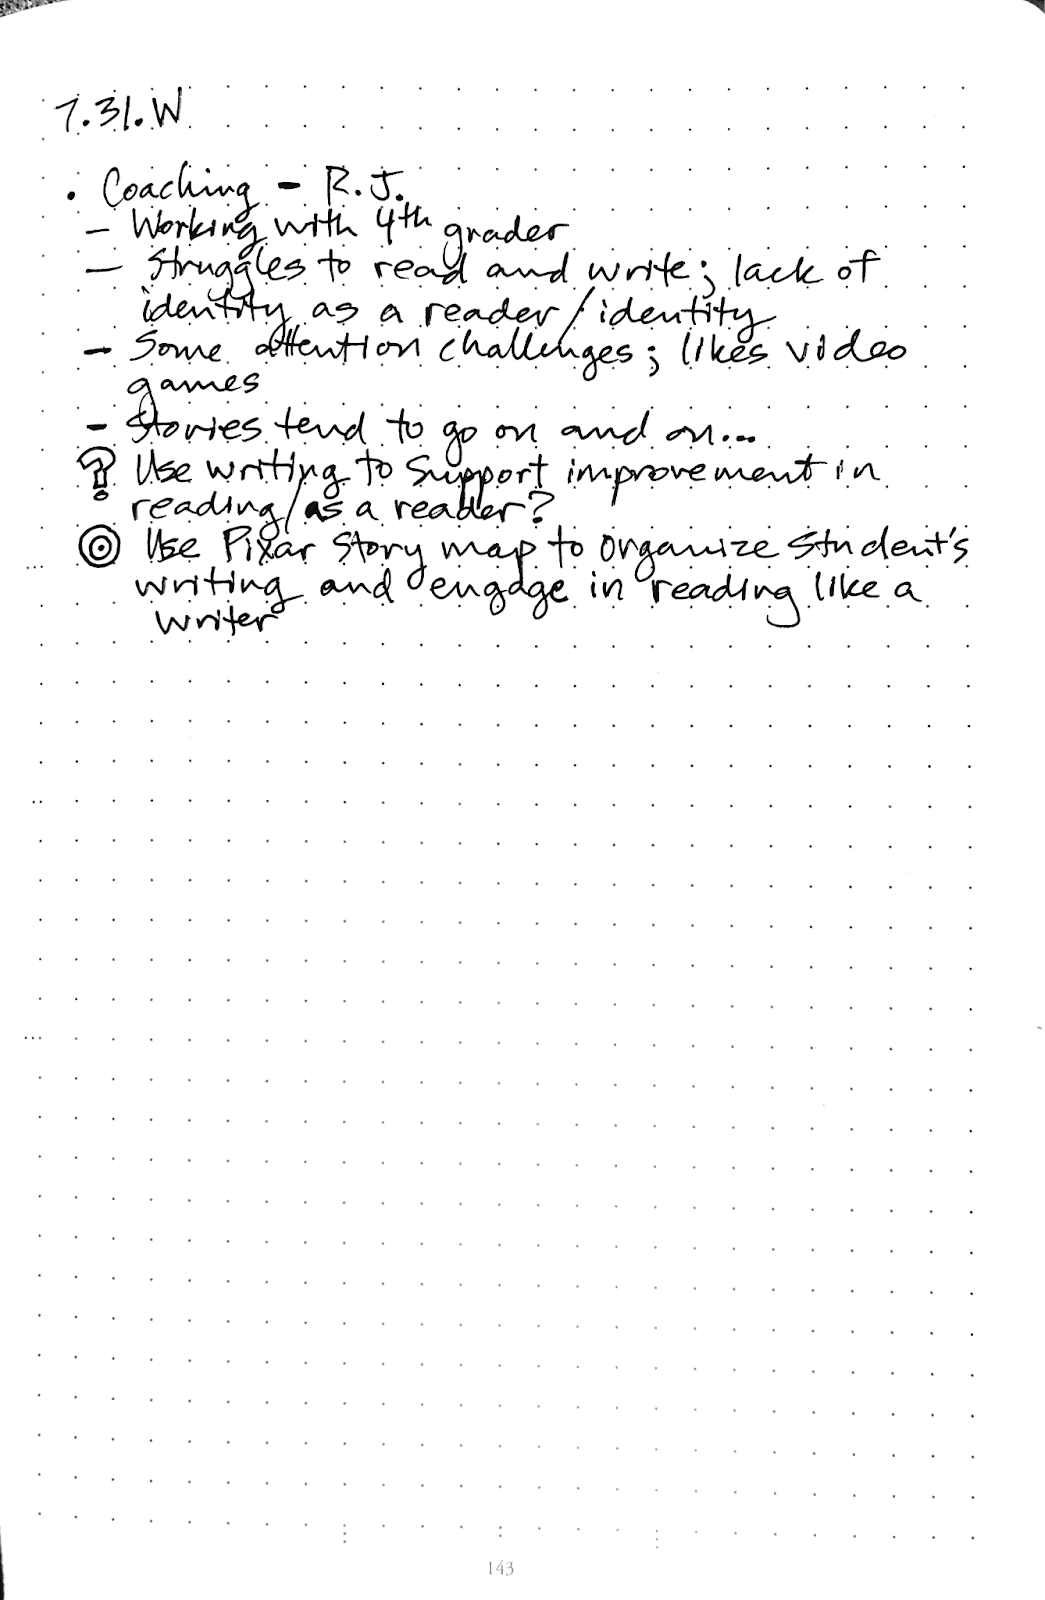 7.31.W
• Coaching - R.J.
- Working with 4th grader
- Struggles to read and write; lack of
identity as a reader/identity
- Some attention challenges; likes video
games
- Stories tend to go on and on...
? Use writing to support improvement in
reading/as a reader?
◎ Use Pixar story map to organize student's
writing and engage in reading like a
writer
143